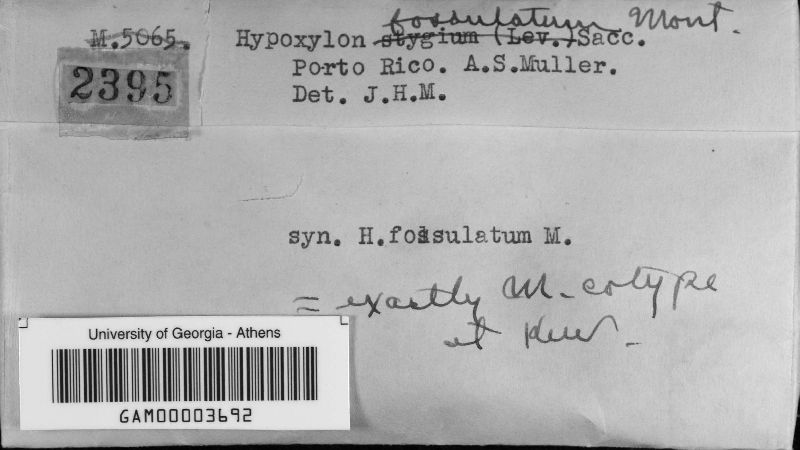 fossulatum Mont.
M.5065. Hypoxylon stygium (Lev.)Sacc.
2395
Porto Rico. A.S.Muller.
Det. J.H.M.
syn. H.fossulatum M.
= exactly M. cotype
at Kew.
University of Georgia - Athens
GAM00003692